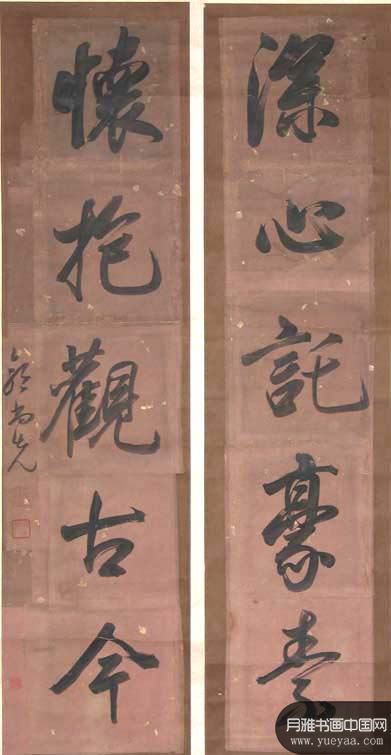 深心託豪素
懷抱觀古今
郭尚先
月雅书画中国网
www.yueyaa.com